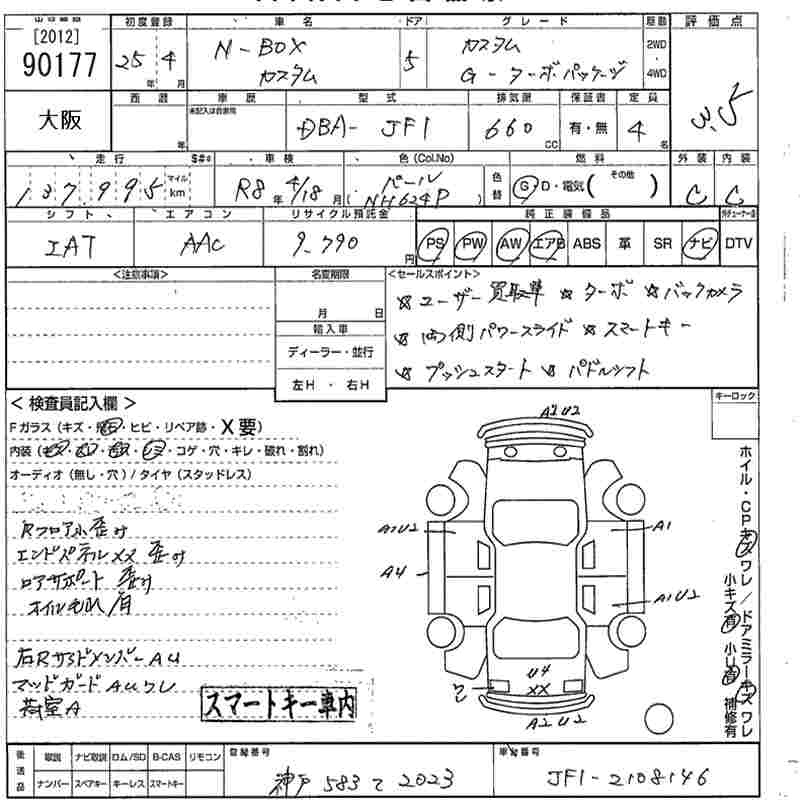 [2012]
90177
大阪
初度登録
25年 4月
車名
N-BOX
カスタム
ドア
5
グレード
カスタム
G-ターボパッケージ
駆動
2WD
4WD
評価点
3.5
西暦
年
車歴
未記入は自家用
型式
DBA- JF1
排気量
660 CC
保証書
有・無
定員
4名
走行
137,995
マイル
km
S#
車検
R8年 4/18月
色(Col.No)
パール
NH624P
色替
燃料
G D・電気( その他 )
外装
C
内装
C
シフト
IAT
エアコン
AAC
リサイクル預託金
9,790円
純正装備品
PS PW AW エアB ABS 革 SR ナビ DTV
<注意事項>
名変期限
月 日
輸入車
ディーラー・並行
左H・右H
<セールスポイント>
☆ユーザー買取車 ☆ターボ ☆バックカメラ
☆両側パワースライド ☆スマートキー
☆プッシュスタート ☆パドルシフト
<検査員記入欄>
Fガラス(キズ・飛石・ヒビ・リペア跡・X要)
内装( コゲ・穴・キレ・破れ・割れ)
オーディオ(無し・穴)/タイヤ(スタッドレス)
Rフロア小歪み
エンドパネルXX歪み
ロアサポート 歪み
オイルモレ/有
右Rサイドメンバー AU
マッドガードAUワレ
荷室A
スマートキー車内
キーロック
A2 U2
A2 U2
A1
A4
A1 U2
U4
XX
ワレ
A2 U2
ホイル・CPキズワレ/ドアミラーキズワレ
小キズ有 小U有 補修有
後送品
取説 ナビ取説 ロム/SD B-CAS リモコン
ナンバー スペアキー キーレス スマートキー
登録番号
神戸 583 て 2023
車台番号
JF1-2108146